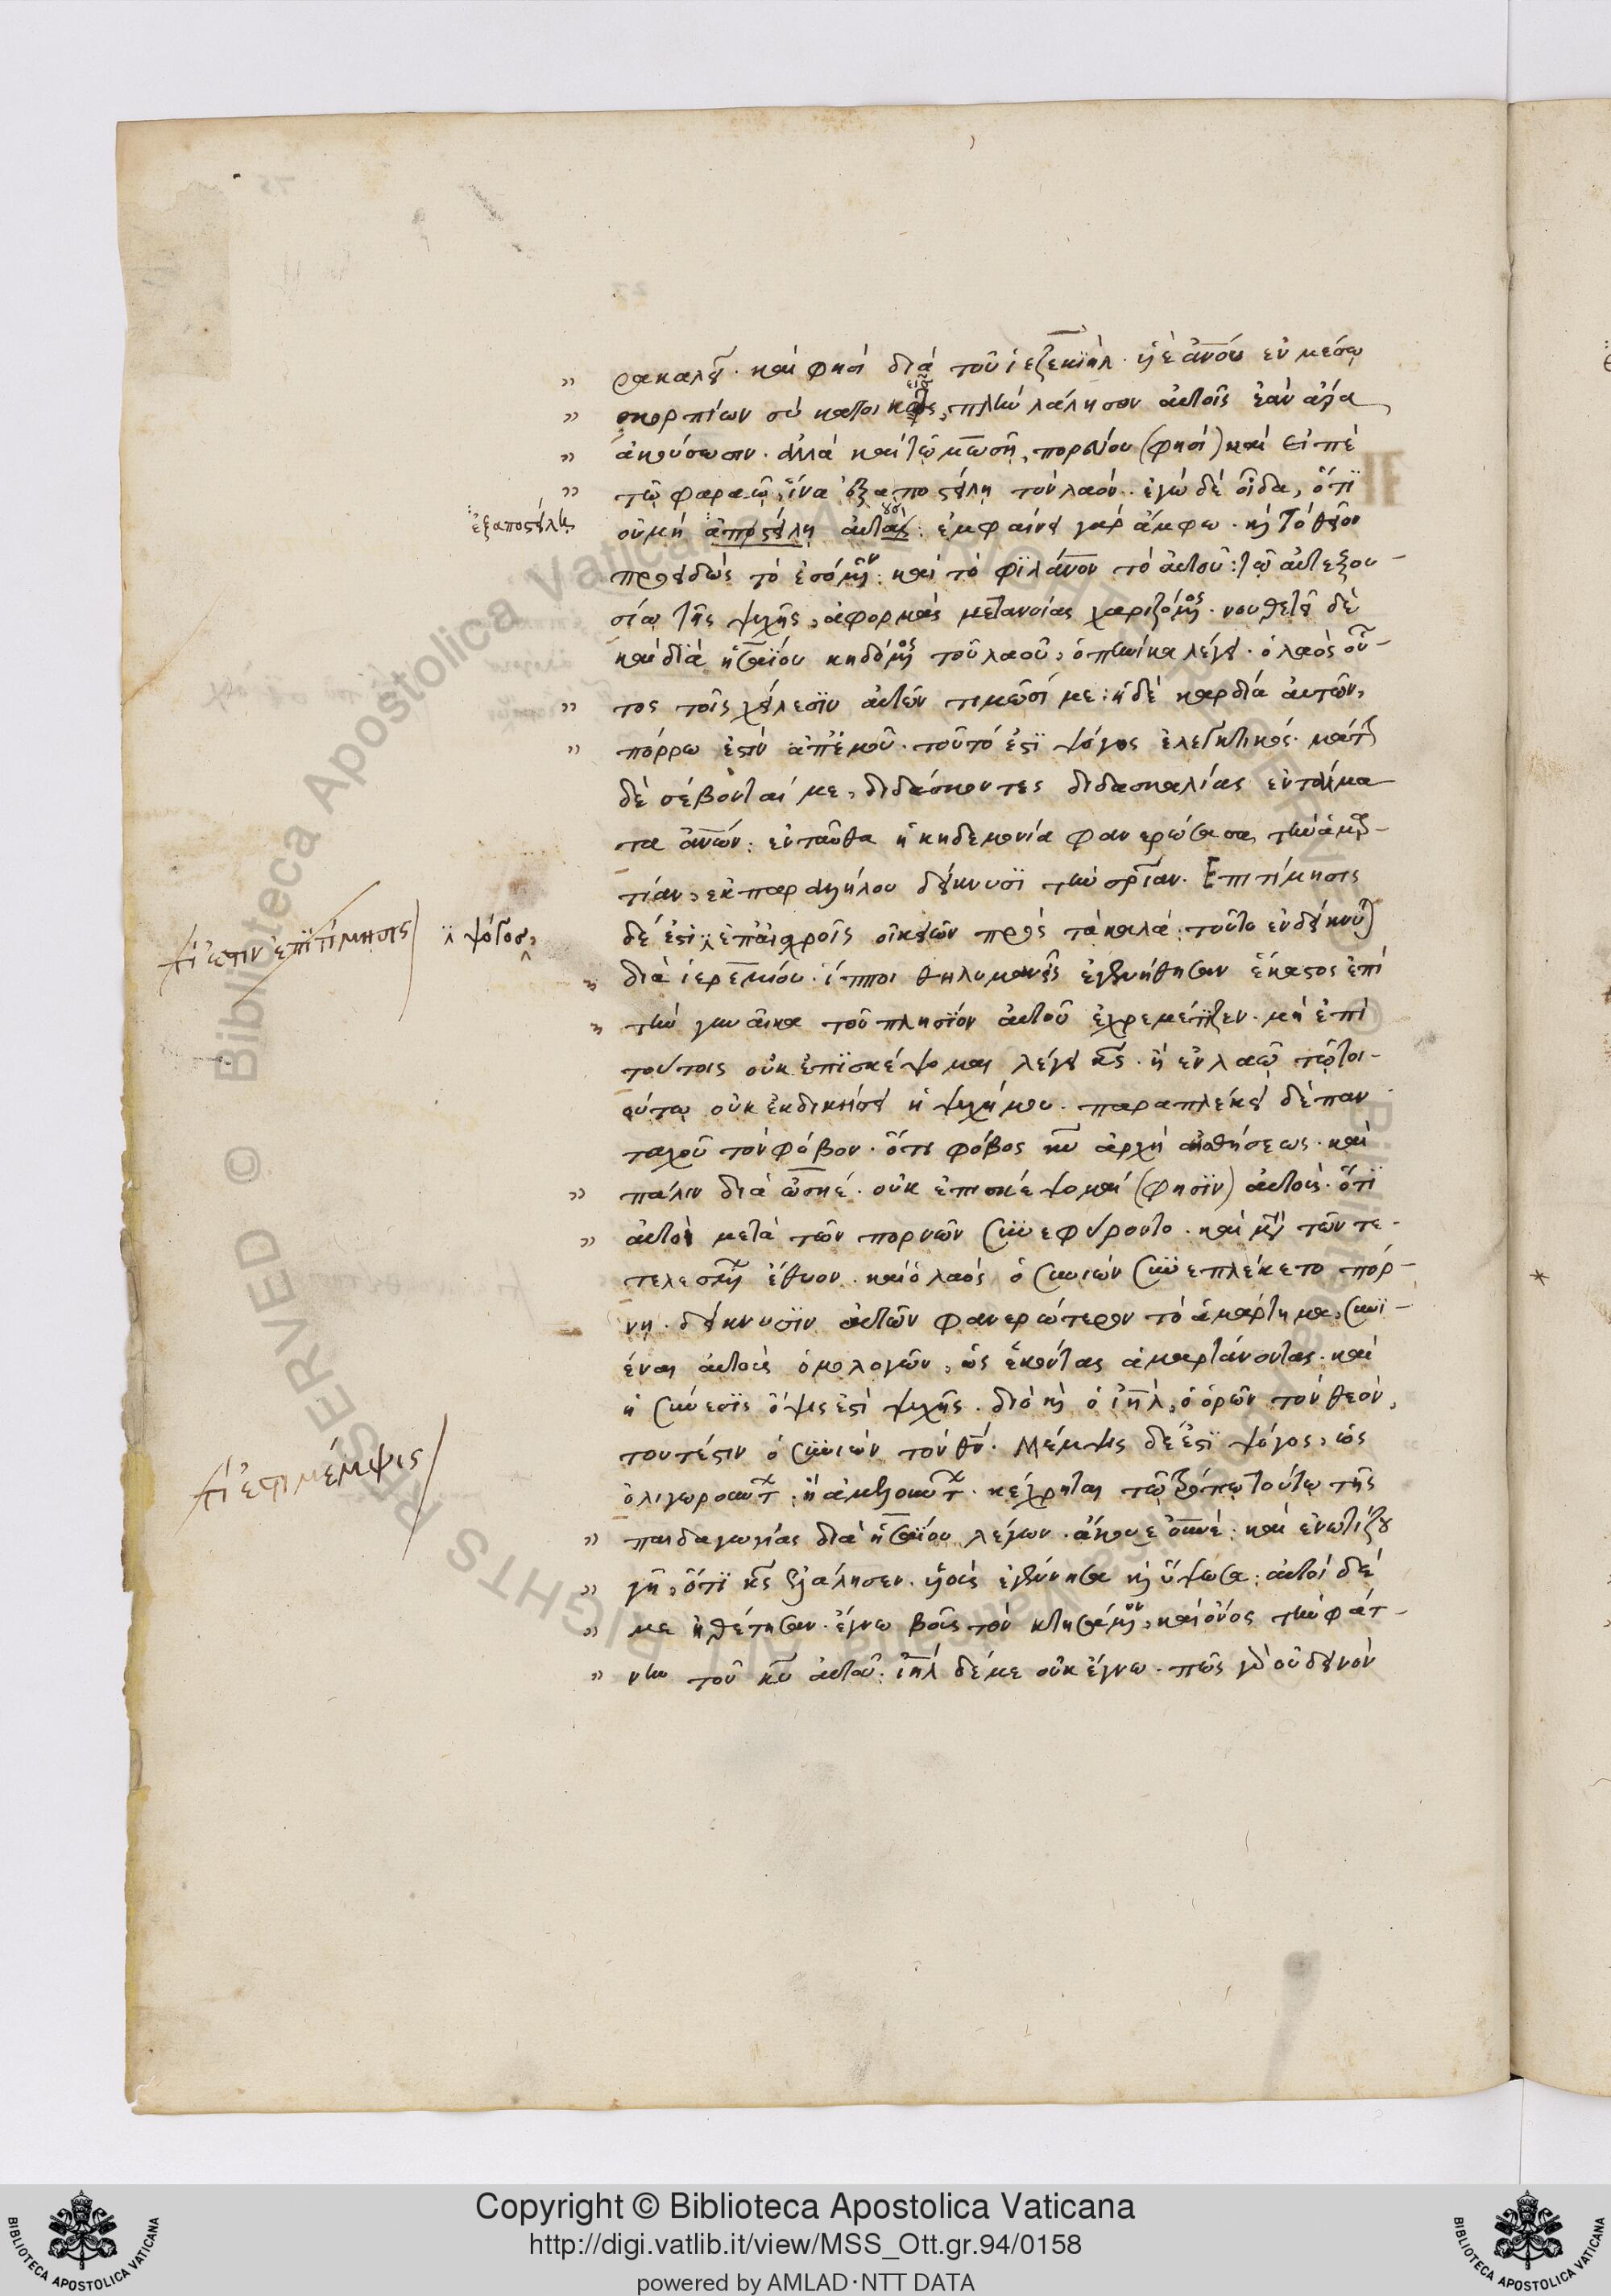 ρακαλεῖ. καὶ φησὶ διὰ τοῦ ἰεζεκιὴλ. υἱὲ ἀνου ἐν μέσῳ
σκορπίων σὺ κατοικεῖς, πλὴν λάλησον αὐτοῖς ἐὰν ἄρα
ἀκούσωσιν. ἀλλὰ καὶ τῷ μωσῇ, πορεύου (φησὶ) καὶ εἰπὲ
τῷ φαραῷ, ἵνα ἐξαποστείλῃ τὸν λαόν. ἐγὼ δὲ οἶδα, ὅτι
ἐξαποστείλῃ
οὐ μὴ ἀποστείλῃ αὐτούς: ἐμφαίνει γὰρ ἄμφω. καὶ τὸ θεῖον
προειδὼς τὸ ἐσόμενον: καὶ τὸ φιλάνον τὸ αὐτοῦ: τῷ αὐτεξου-
σίῳ τῆς ψυχῆς, ἀφορμὰς μετανοίας χαριζόμενος. νουθετεῖ δὲ
καὶ διὰ ἡσαΐου κηδόμενος τοῦ λαοῦ, ὁπηνίκα λέγει. ὁ λαὸς οὗ-
τος τοῖς χείλεσιν αὐτῶν τιμῶσί με: ἡ δὲ καρδία αὐτῶν,
πόρρω ἐστὶν ἀπ' ἐμοῦ. τοῦτό ἐστι ψόγος ἐλεγκτικός. μάτην
δὲ σέβονταί με, διδάσκοντες διδασκαλίας ἐντάλμα
τα ἀνων: ἐνταῦθα ἡ κηδεμονία φανερώσασα τὴν ἁμαρ-
τίαν, ἐκ παραλλήλου δείκνυσι τὴν σρίαν. Ἐπιτίμησις
τί ἐστιν ἐπιτίμησις
ἢ ψόγος,
δέ ἐστι ἐπ' αἰσχροῖς οἰκειῶν πρὸς τὰ καλά: τοῦτο ἐνδείκνυται
διὰ ἱερεμίου. ἵπποι θηλυμανεῖς ἐγενήθησαν ἕκαστος ἐπὶ
τὴν γυναῖκα τοῦ πλησίον αὐτοῦ ἐχρεμέτιζεν. μὴ ἐπὶ
τούτοις οὐκ ἐπισκέψομαι λέγει κς. ἢ ἐν λαῷ τῷ τοι-
ούτῳ οὐκ ἐκδικήσει ἡ ψυχή μου. παραπλέκει δὲ παν
ταχοῦ τὸν φόβον. ὅτι φόβος κυ ἀρχὴ αἰσθήσεως. καὶ
πάλιν διὰ ὠσηέ. οὐκ ἐπισκέψομαί (φησὶν) αὐτούς. ὅτι
αὐτοὶ μετὰ τῶν πορνῶν συνεφύροντο. καὶ μετὰ τῶν τε-
τελεσμένων ἔθυον. καὶ ὁ λαὸς ὁ συνιὼν συνεπλέκετο πόρ-
νῃ. δείκνυσιν αὐτῶν φανερώτερον τὸ ἁμάρτημα, συνι-
έναι αὐτοὺς ὁμολογῶν, ὡς ἑκόντας ἁμαρτάνοντας. καὶ
ἡ σύνεσις ὄψις ἐστὶ ψυχῆς. διὸ καὶ ὁ ἰηλ, ὁ ὁρῶν τὸν θεόν,
τουτέστιν ὁ συνιὼν τὸν θν. Μέμψις δέ ἐστι ψόγος, ὡς
τί ἐστι μέμψις
ὀλιγωρούντων, ἢ ἀμελούντων. κέχρηται τῷ τρόπῳ τούτῳ τῆς
παιδαγωγίας διὰ ἡσαΐου λέγων. ἄκουε οὐνὲ: καὶ ἐνωτίζου
γῆ, ὅτι κς ἐλάλησεν. υἱοὺς ἐγέννησα καὶ ὕψωσα: αὐτοὶ δέ
με ἠθέτησαν. ἔγνω βοῦς τὸν κτησάμενον, καὶ ὄνος τὴν φάτ-
νην τοῦ κυ αὐτοῦ: ἰηλ δέ με οὐκ ἔγνω. πῶς γὰρ οὐ δεινὸν
Copyright © Biblioteca Apostolica Vaticana
http://digi.vatlib.it/view/MSS_Ott.gr.94/0158
powered by AMLAD·NTT DATA